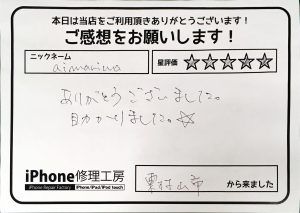 本日は当店をご利用頂きありがとうございます！
ご感想をお願いします！
ニックネーム
aimarima
星評価 ☆☆☆☆☆
ありがとうございました。
助かりました。☆
iPhone修理工房
iPhone Repair Factory
iPhone/iPad/iPod touch
から来ました